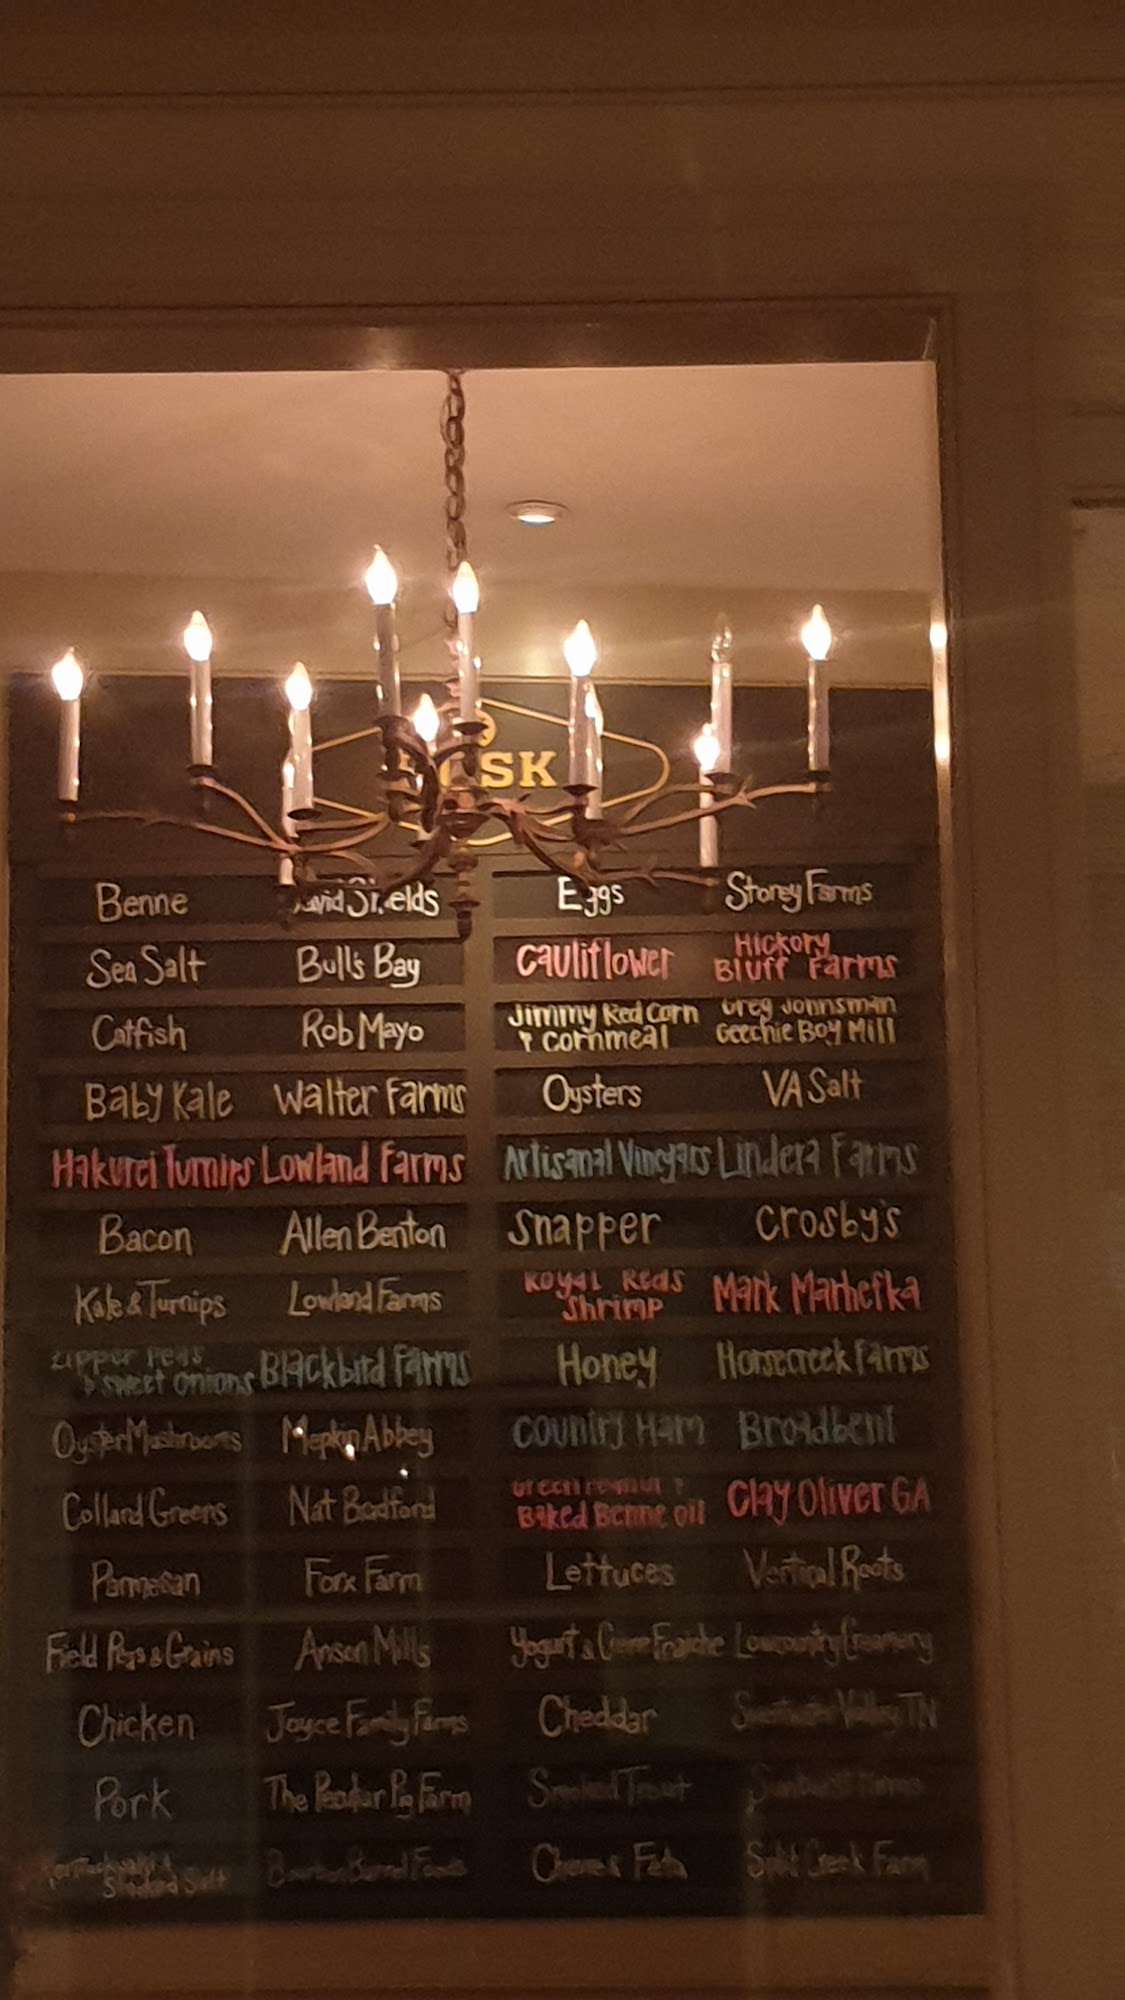 SK
Benne David Shields Eggs Storey Farms
Sea Salt Bull's Bay Cauliflower Hickory
Bluff Farms
Catfish Rob Mayo Jimmy Red Corn Greg Johnsman
& Cornmeal Geechie Boy Mill
Baby Kale Walter Farms Oysters VA Salt
Hakurei Turnips Lowland Farms Artisanal Vinegars Lindera Farms
Bacon Allen Benton Snapper Crosby's
Kale & Turnips Lowland Farms Royal Reds Mark Marhefka
Shrimp
Zipper Peas Blackbird Farms Honey Horsecreek Farms
& Sweet Onions
Oyster Mushrooms Mepkin Abbey Country Ham Broadbent
Collard Greens Nat Bradford Green Peanut & Clay Oliver GA
Baked Benne Oil
Parmesan Forx Farm Lettuces Vertical Roots
Field Peas & Grains Anson Mills Yogurt & Creme Fraiche Lowcountry Creamery
Chicken Joyce Family Farms Cheddar Sweetwater Valley TN
Pork The Peculiar Pig Farm Smoked Trout Sunburst Farms
Smoked Salt Bourbon Barrel Foods Feta Split Creek Farm